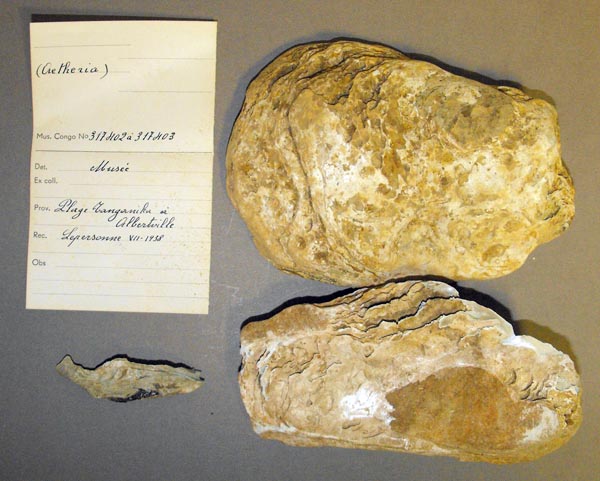 (Aetheria)
Mus. Congo No 317402 à 317403
Det. Musée
Ex coll.
Prov. Plage Tanganika à
Albertville
Rec. Lepersonne XII-1938
Obs